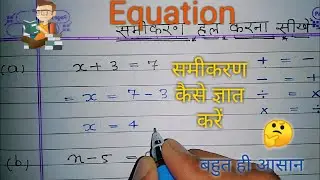 Equation
समीकरण हल करना सीखें
(a) x + 3 = 7
= x = 7 - 3
x = 4
(b) x - 5 =
+ = -
- = +
÷ = ×
× = ÷
समीकरण
कैसे ज्ञात
करें
बहुत ही आसान